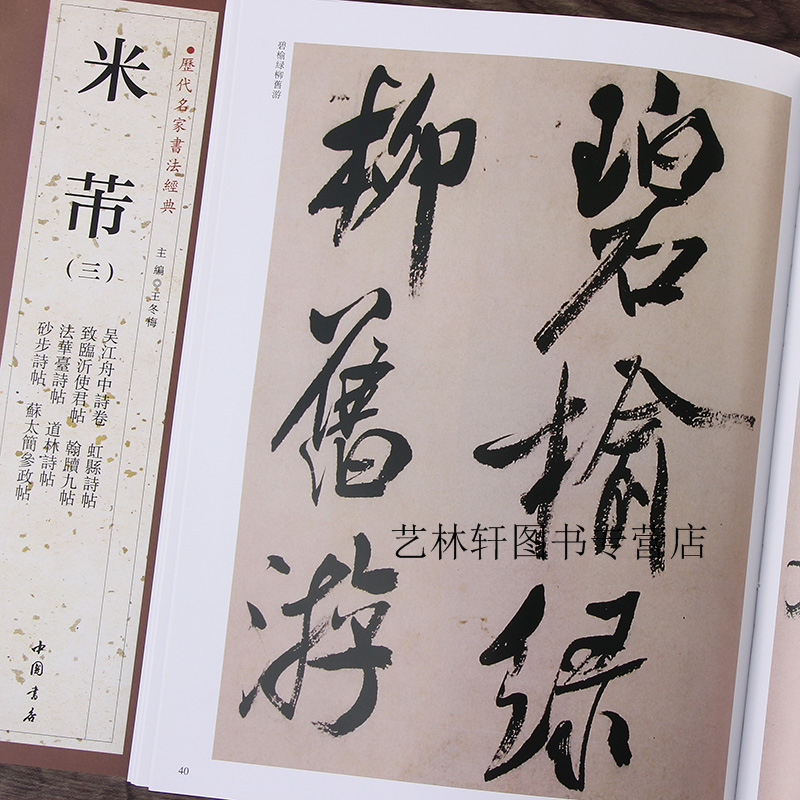 歷代名家書法經典
米芾
(三)
主編◎王冬梅
吴江舟中詩卷 虹縣詩帖
致臨沂使君帖 翰牘九帖
法華臺詩帖 道林詩帖
砂步詩帖 蘇太簡參政帖
中国書店
碧榆绿柳舊游
碧榆绿
柳舊游
艺林轩图书专营店
40